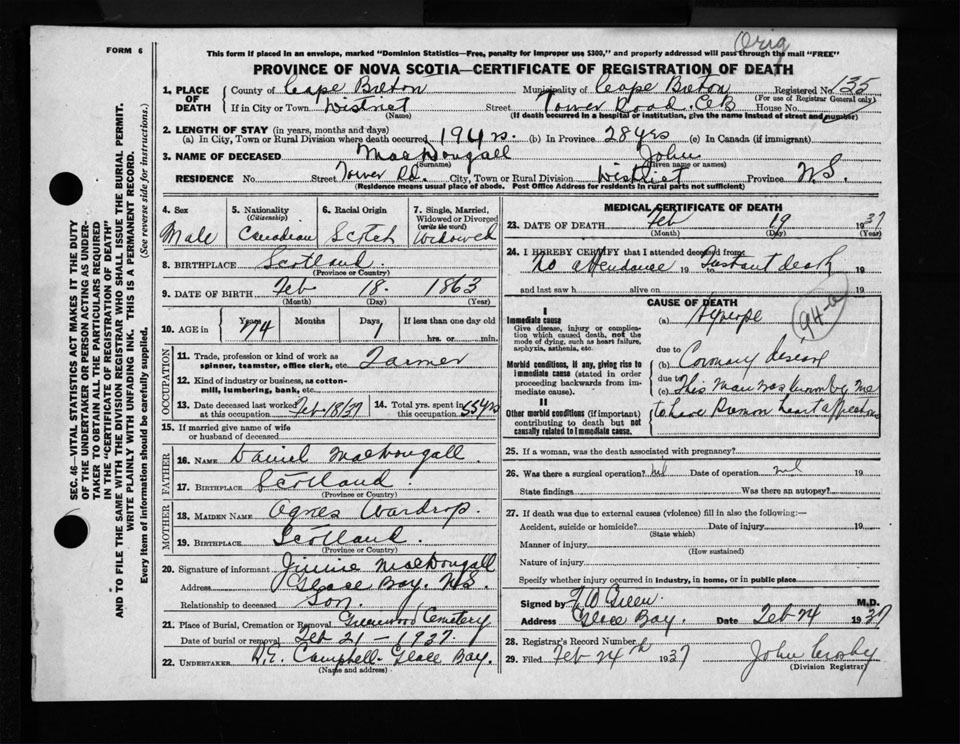 Orig
FORM 6
This form if placed in an envelope, marked "Dominion Statistics—Free, penalty for improper use $300," and properly addressed will pass through the mail "FREE"
PROVINCE OF NOVA SCOTIA—CERTIFICATE OF REGISTRATION OF DEATH
1. PLACE OF DEATH { County of Cape Breton Municipality of Cape Breton Registered No. 135
(For use of Registrar General only)
If in City or Town District Street Tower Road. C.B House No.
(Name) (If death occurred in a hospital or institution, give the name instead of street and number)
2. LENGTH OF STAY (in years, months and days)
(a) In City, Town or Rural Division where death occurred 19 yrs. (b) In Province 28 yrs (c) In Canada (if immigrant)
3. NAME OF DECEASED MacDougall John
(Surname) (Given name or names)
RESIDENCE No. Street Tower Rd. City, Town or Rural Division District Province N.S.
(Residence means usual place of abode. Post Office Address for residents in rural parts not sufficient)
4. Sex Male
5. Nationality (Citizenship) Canadian
6. Racial Origin Scotch
7. Single, Married, Widowed or Divorced (write the word) Widowed
8. BIRTHPLACE Scotland.
(Province or Country)
9. DATE OF BIRTH Feb 18. 1863
(Month) (Day) (Year)
10. AGE in { Years 74 Months Days 1 If less than one day old
hrs. or min.
OCCUPATION
11. Trade, profession or kind of work as spinner, teamster, office clerk, etc. Farmer
12. Kind of industry or business, as cotton-mill, lumbering, bank, etc.
13. Date deceased last worked at this occupation. Feb 18/37
14. Total yrs. spent in this occupation. 55 yrs
15. If married give name of wife or husband of deceased
FATHER
16. NAME Daniel MacDougall.
17. BIRTHPLACE Scotland
(Province or Country)
MOTHER
18. MAIDEN NAME Agnes Wardrop.
19. BIRTHPLACE Scotland.
(Province or Country)
20. Signature of informant Jimmie MacDougall
Address Glace Bay, N.S.
Relationship to deceased Son.
21. Place of Burial, Cremation or Removal Greenwood Cemetery
Date of burial or removal Feb 21 - 1937.
22. UNDERTAKER A.E. Campbell - Glace Bay.
(Name and address)
MEDICAL CERTIFICATE OF DEATH
23. DATE OF DEATH Feb 19 1937
(Month) (Day) (Year)
24. I HEREBY CERTIFY that I attended deceased from:
No attendance 19 to Instant death 19
and last saw h alive on 19
CAUSE OF DEATH
I
Immediate cause
Give disease, injury or complication which caused death, not the mode of dying, such as heart failure, asphyxia, asthenia, etc.
(a) Syncope
94-b
Morbid conditions, if any, giving rise to immediate cause (stated in order proceeding backwards from immediate cause).
due to
(b) Coronary disease
due to
(c) This man was known by me
to have
II
Other morbid conditions (if important) contributing to death but not causally related to immediate cause.
25. If a woman, was the death associated with pregnancy?
26. Was there a surgical operation? nil Date of operation nil 19
State findings Was there an autopsy?
27. If death was due to external causes (violence) fill in also the following:—
Accident, suicide or homicide? Date of injury 19
(State which)
Manner of injury
(How sustained)
Nature of injury
Specify whether injury occurred in industry, in home, or in public place
Signed by Green. M.D.
Address Glace Bay. Date Feb 24 1937
28. Registrar's Record Number
29. Filed Feb 24th 1937 John Crosby
(Division Registrar)
SEC. 46—VITAL STATISTICS ACT MAKES IT THE DUTY OF THE UNDERTAKER OR PERSON ACTING AS UNDERTAKER TO OBTAIN ALL THE PARTICULARS REQUIRED IN THE "CERTIFICATE OF REGISTRATION OF DEATH" AND TO FILE THE SAME WITH THE DIVISION REGISTRAR WHO SHALL ISSUE THE BURIAL PERMIT.
WRITE PLAINLY WITH UNFADING INK. THIS IS A PERMANENT RECORD.
Every item of information should be carefully supplied. (See reverse side for instructions.)